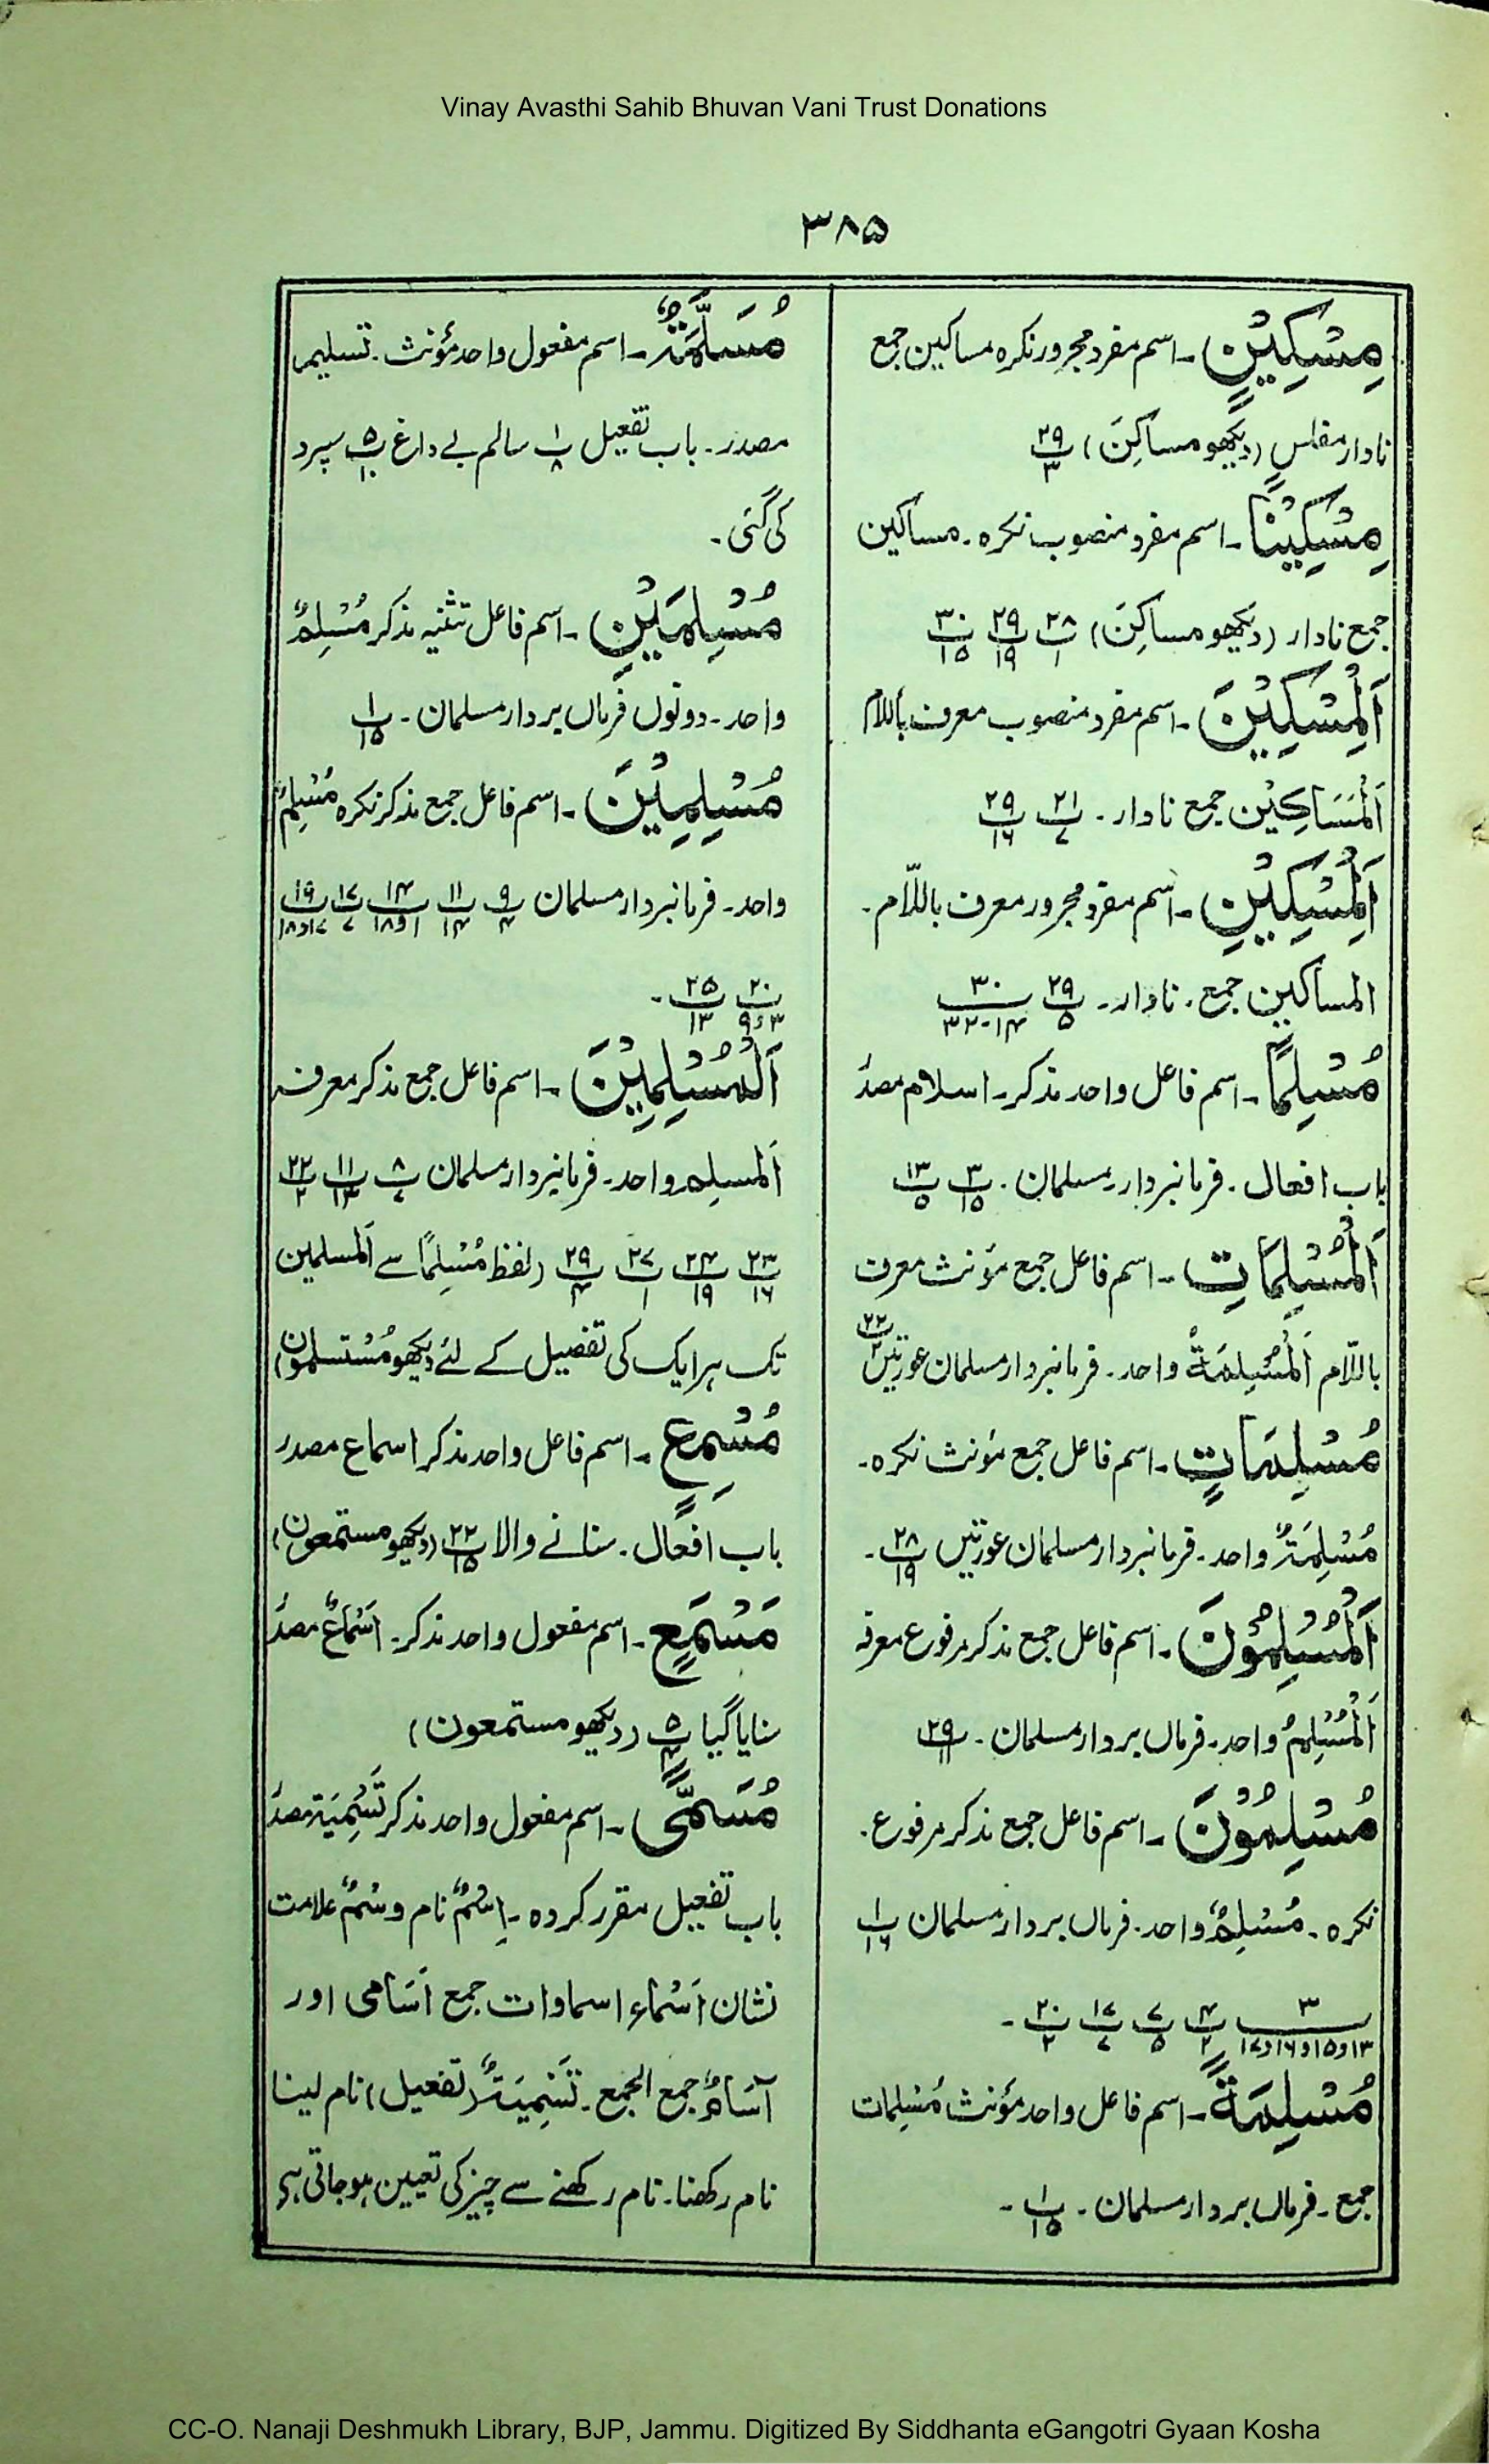 Vinay Avasthi Sahib Bhuvan Vani Trust Donations
۳۸۵
مِسْكِيْنٍ ۔ اسم مفرد مجرور نکرہ مساکین جمع
نادار مفلس (دیکھو مساکِنَ) ۲۹/۳
مِسْكِيْنًا ۔ اسم مفرد منصوب نکرہ ۔ مساکین
جمع نادار (دیکھو مساکِنَ) ۲۸/۱ ۲۹/۱۹ ۳۰/۱۵
اَلْمِسْكِيْنَ ۔ اسم مفرد منصوب معرف باللام
اَلْمَسَاكِيْن جمع نادار ۔ ۲۱/۷ ۲۹/۱۶
اَلْمِسْكِيْنِ ۔ اسم مفرد مجرور معرف باللّام ۔
المساکین جمع ۔ نادار ۔ ۲۹/۵ ۳۰/۱۴-۳۲
مُسْلِمًا ۔ اسم فاعل واحد مذکر ۔ اسلام مصدر
باب افعال ۔ فرمانبردار ۔ مسلمان ۔ ۳/۱۵ ۱۳/۵
اَلْمُسْلِمَاتِ ۔ اسم فاعل جمع مؤنث معرف
باللّام اَلْمُسْلِمَةُ واحد ۔ فرمانبردار مسلمان عورتیں ۲۲/۲
مُسْلِمَاتٍ ۔ اسم فاعل جمع مؤنث نکرہ ۔
مُسْلِمَةٌ واحد ۔ فرمانبردار مسلمان عورتیں ۲۸/۱۹ ۔
اَلْمُسْلِمُوْنَ ۔ اسم فاعل جمع مذکر مرفوع معرفہ
اَلْمُسْلِمُ واحد ۔ فرماں بردار مسلمان ۔ ۲۹/۱۱
مُسْلِمُوْنَ ۔ اسم فاعل جمع مذکر مرفوع ۔
نکرہ ۔ مُسْلِمٌ واحد ۔ فرماں بردار مسلمان ۱/۱۶
۳/۱۳و۱۵و۱۶و۱۷ ۴/۲ ۷/۵ ۱۷/۷ ۲۰/۲ ۔
مُسْلِمَةً ۔ اسم فاعل واحد مؤنث مُسْلِمات
جمع ۔ فرماں بردار مسلمان ۔ ۱/۱۵ ۔
مُسَلَّمَةٌ ۔ اسم مفعول واحد مؤنث ۔ تسلیم
مصدر ۔ باب تفعیل ۱/۸ سالم بے داغ ۵/۱۰ سپرد
کی گئی ۔
مُسْلِمَيْنِ ۔ اسم فاعل تثنیہ مذکر مُسْلِمٌ
واحد ۔ دونوں فرماں بردار مسلمان ۔ ۱/۱۵
مُسْلِمِيْنَ ۔ اسم فاعل جمع مذکر نکرہ مُسْلِمٌ
واحد ۔ فرمانبردار مسلمان ۹/۴ ۱۱/۱۴ ۱۴/۱و۱۸ ۱۷/۷ ۱۹/۱۷و۱۸
۲۰/۳و۹ ۲۵/۱۳ ۔
اَلْمُسْلِمِيْنَ ۔ اسم فاعل جمع مذکر معرفہ
اَلمسلم واحد ۔ فرمانبردار مسلمان ۸/۷ ۱۱/۱۳ ۲۲/۲
۲۳/۱۶ ۲۴/۱۹ ۲۷/۱ ۲۹/۴ (لفظ مُسْلِمًا سے اَلمسلمین
تک ہر ایک کی تفصیل کے لئے دیکھو مُسْتسلمون)
مُسْمِعٍ ۔ اسم فاعل واحد مذکر اسماع مصدر
باب افعال ۔ سنانے والا ۲۲/۱۵ (دیکھو مستمعون)
مَسْمَعٍ ۔ اسم مفعول واحد مذکر ۔ اَسْمَاعٌ مصدر
سنایا گیا ۵/۴ (دیکھو مستمعون)
مُسَمًّى ۔ اسم مفعول واحد مذکر تَسْمِيَة مصدر
باب تفعیل مقرر کردہ ۔ اِسْمٌ نام وسْمٌ علامت
نشان اَسْماء اسماوات جمع اَسَامی اور
اَسَامٌ جمع الجمع ۔ تَسْمِيَةٌ (تفعیل) نام لینا
نام رکھنا ۔ نام رکھنے سے چیز کی تعیین ہو جاتی ہے
CC-O. Nanaji Deshmukh Library, BJP, Jammu. Digitized By Siddhanta eGangotri Gyaan Kosha